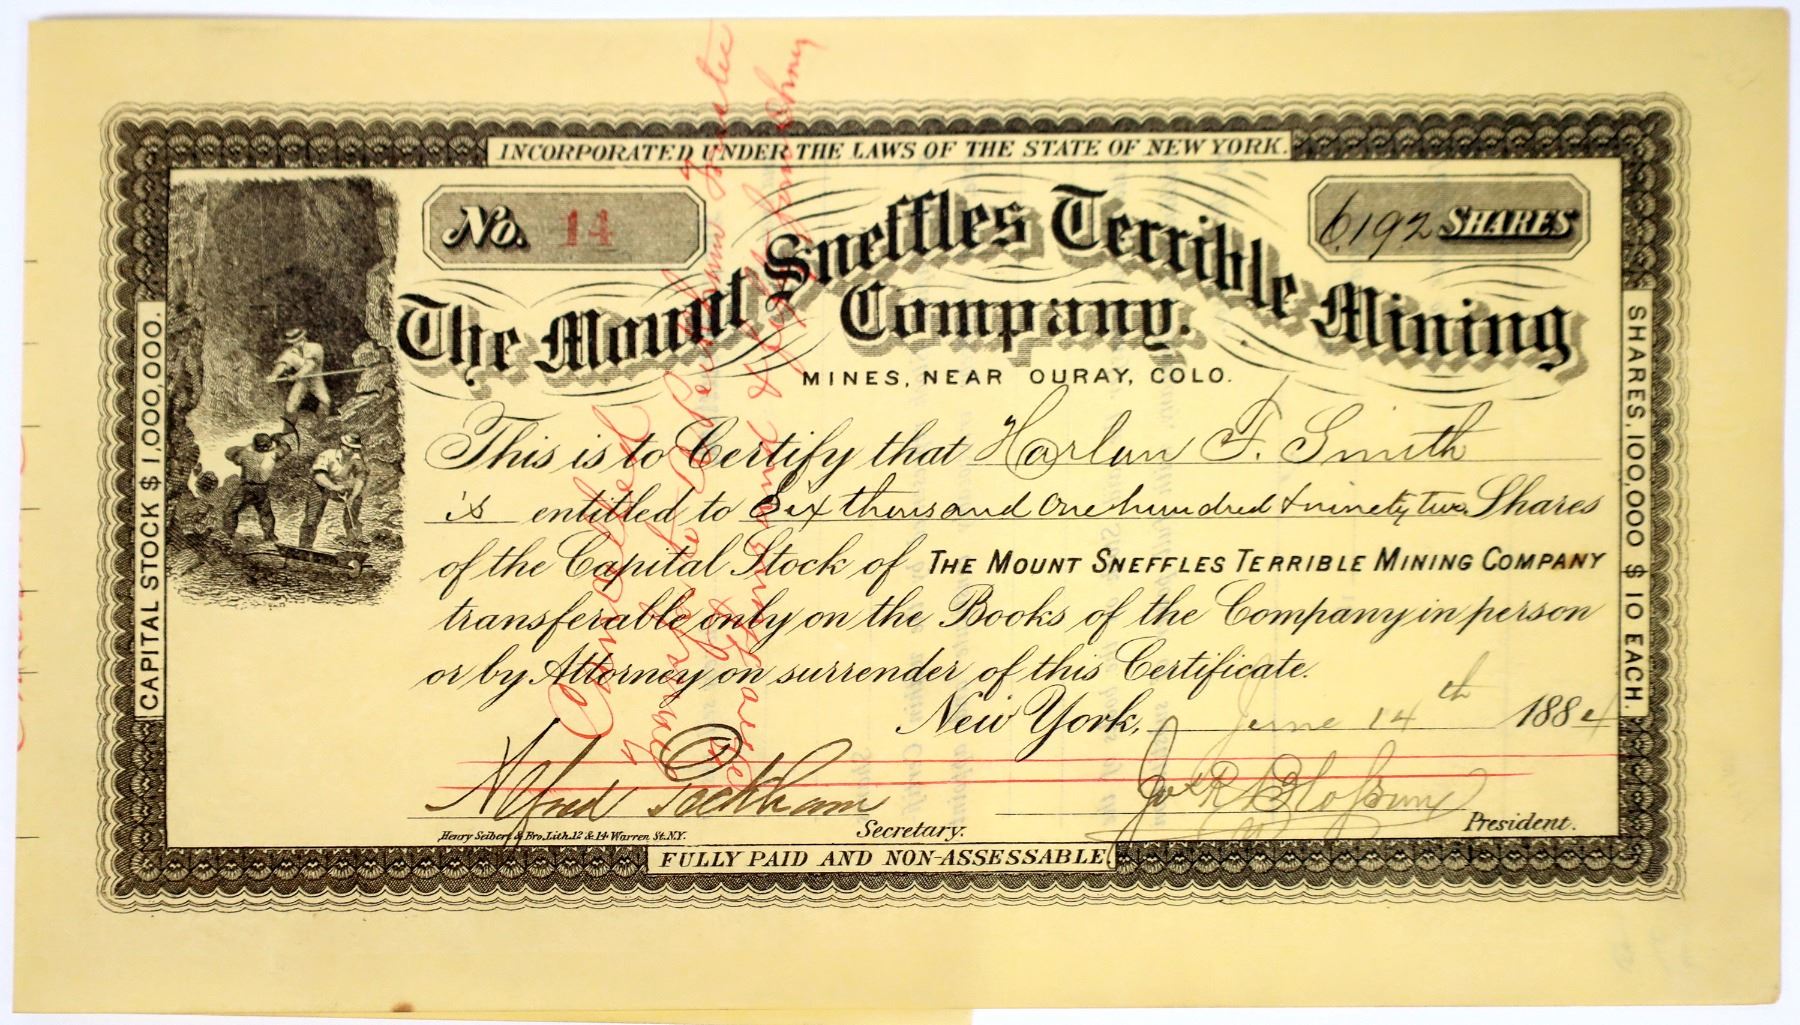 INCORPORATED UNDER THE LAWS OF THE STATE OF NEW YORK.
No. 14
6,192 SHARES
The Mount Sneffles Terrible Mining
Company.
MINES, NEAR OURAY, COLO.
CAPITAL STOCK $ 1,000,000.
SHARES, 100,000 $ 10 EACH.
This is to Certify that Harlan F. Smith
is entitled to Six thousand One hundred & ninety two Shares
of the Capital Stock of THE MOUNT SNEFFLES TERRIBLE MINING COMPANY
transferable only on the Books of the Company in person
or by Attorney on surrender of this Certificate.
New York, June 14th 1884
Alfred Peckham
Secretary.
Jos. R. Blossom
President.
Henry Seibert & Bro. Lith. 12 & 14 Warren St. N.Y.
FULLY PAID AND NON-ASSESSABLE.
Cancelled
by